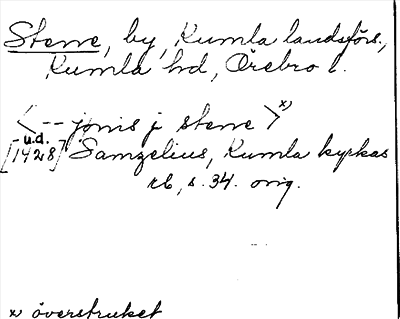 Stene, by, Kumla landsförs.,
Kumla hd, Örebro l.
<-- jönis j stene >x)
- u.d.
[1428] Samzelius, Kumla kyrkas
rb, s. 34. orig.
x) överstruket